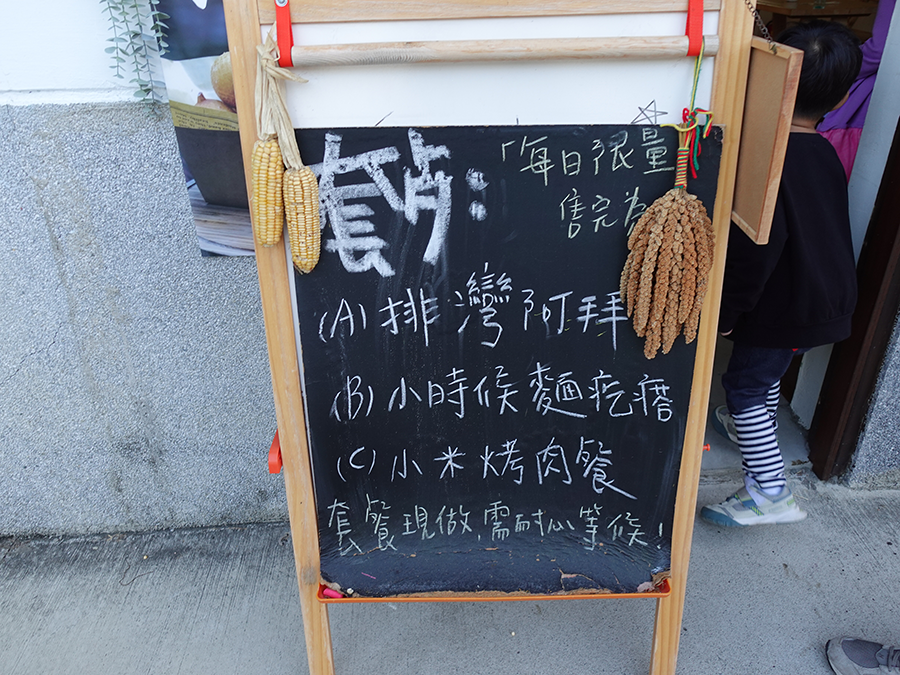 套歺：
「每日限量
售完為
(A) 排灣阿拜
(B) 小時候麵疙瘩
(C) 小米烤肉餐
套餐現做,需耐心等候!